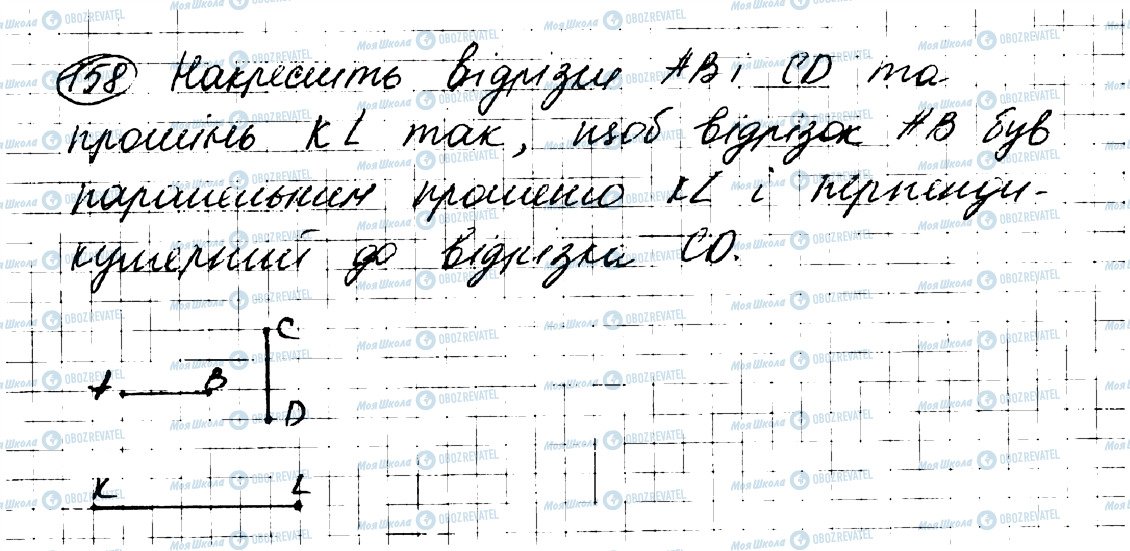 158 Накресліть відрізки AB і CD та
промінь KL так, щоб відрізок AB був
паралельним променю KL і перпенди-
кулярний до відрізка CD.
C
A B
D
K L
МояШкола OBOZREVATEL